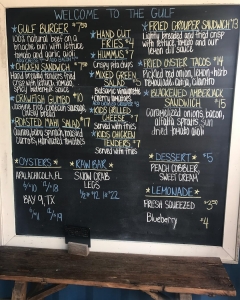 WELCOME TO THE GULF
*GULF BURGER*
100% natural beef on a
brioche bun with lettuce
tomato and garlic aioli
*CHICKEN SANDWICH*
Hand breaded tenders fried
crisp with lettuce, tomato,
spicy buttermilk sauce
*CRAWFISH GUMBO* $10
sausage
and rice
*ROASTED MAHI SALAD* $17
*HAND CUT
FRIES* $4
*HUMMUS* $7
*MIXED GREEN
SALAD
Balsamic vinaigrette
cherry tomatoes
*KIDS GRILLED
CHEESE $7
Served with fries
*KIDS CHICKEN
TENDERS $7
Served with fries
*FRIED GROUPER SANDWICH* $13
Lightly breaded and fried crisp
with lettuce, tomato and our
Green oil sauce
*FRIED OYSTER TACOS $14
Pickled red onion, lemon-herb
remoulade, cilantro
*BLACKENED AMBERJACK
SANDWICH $15
Caramelized onions, bacon,
alfalfa sprouts, sun
dried tomato aioli
*OYSTERS*
APALACHICOLA, FL
6/$10 12/$18
BAY 9, TX
12/$19
*RAW BAR*
SNOW CRAB
LEGS
*DESSERT* $5
PEACH COBBLER,
SWEET CREAM
*LEMONADE*
FRESH SQUEEZED
Blueberry $4